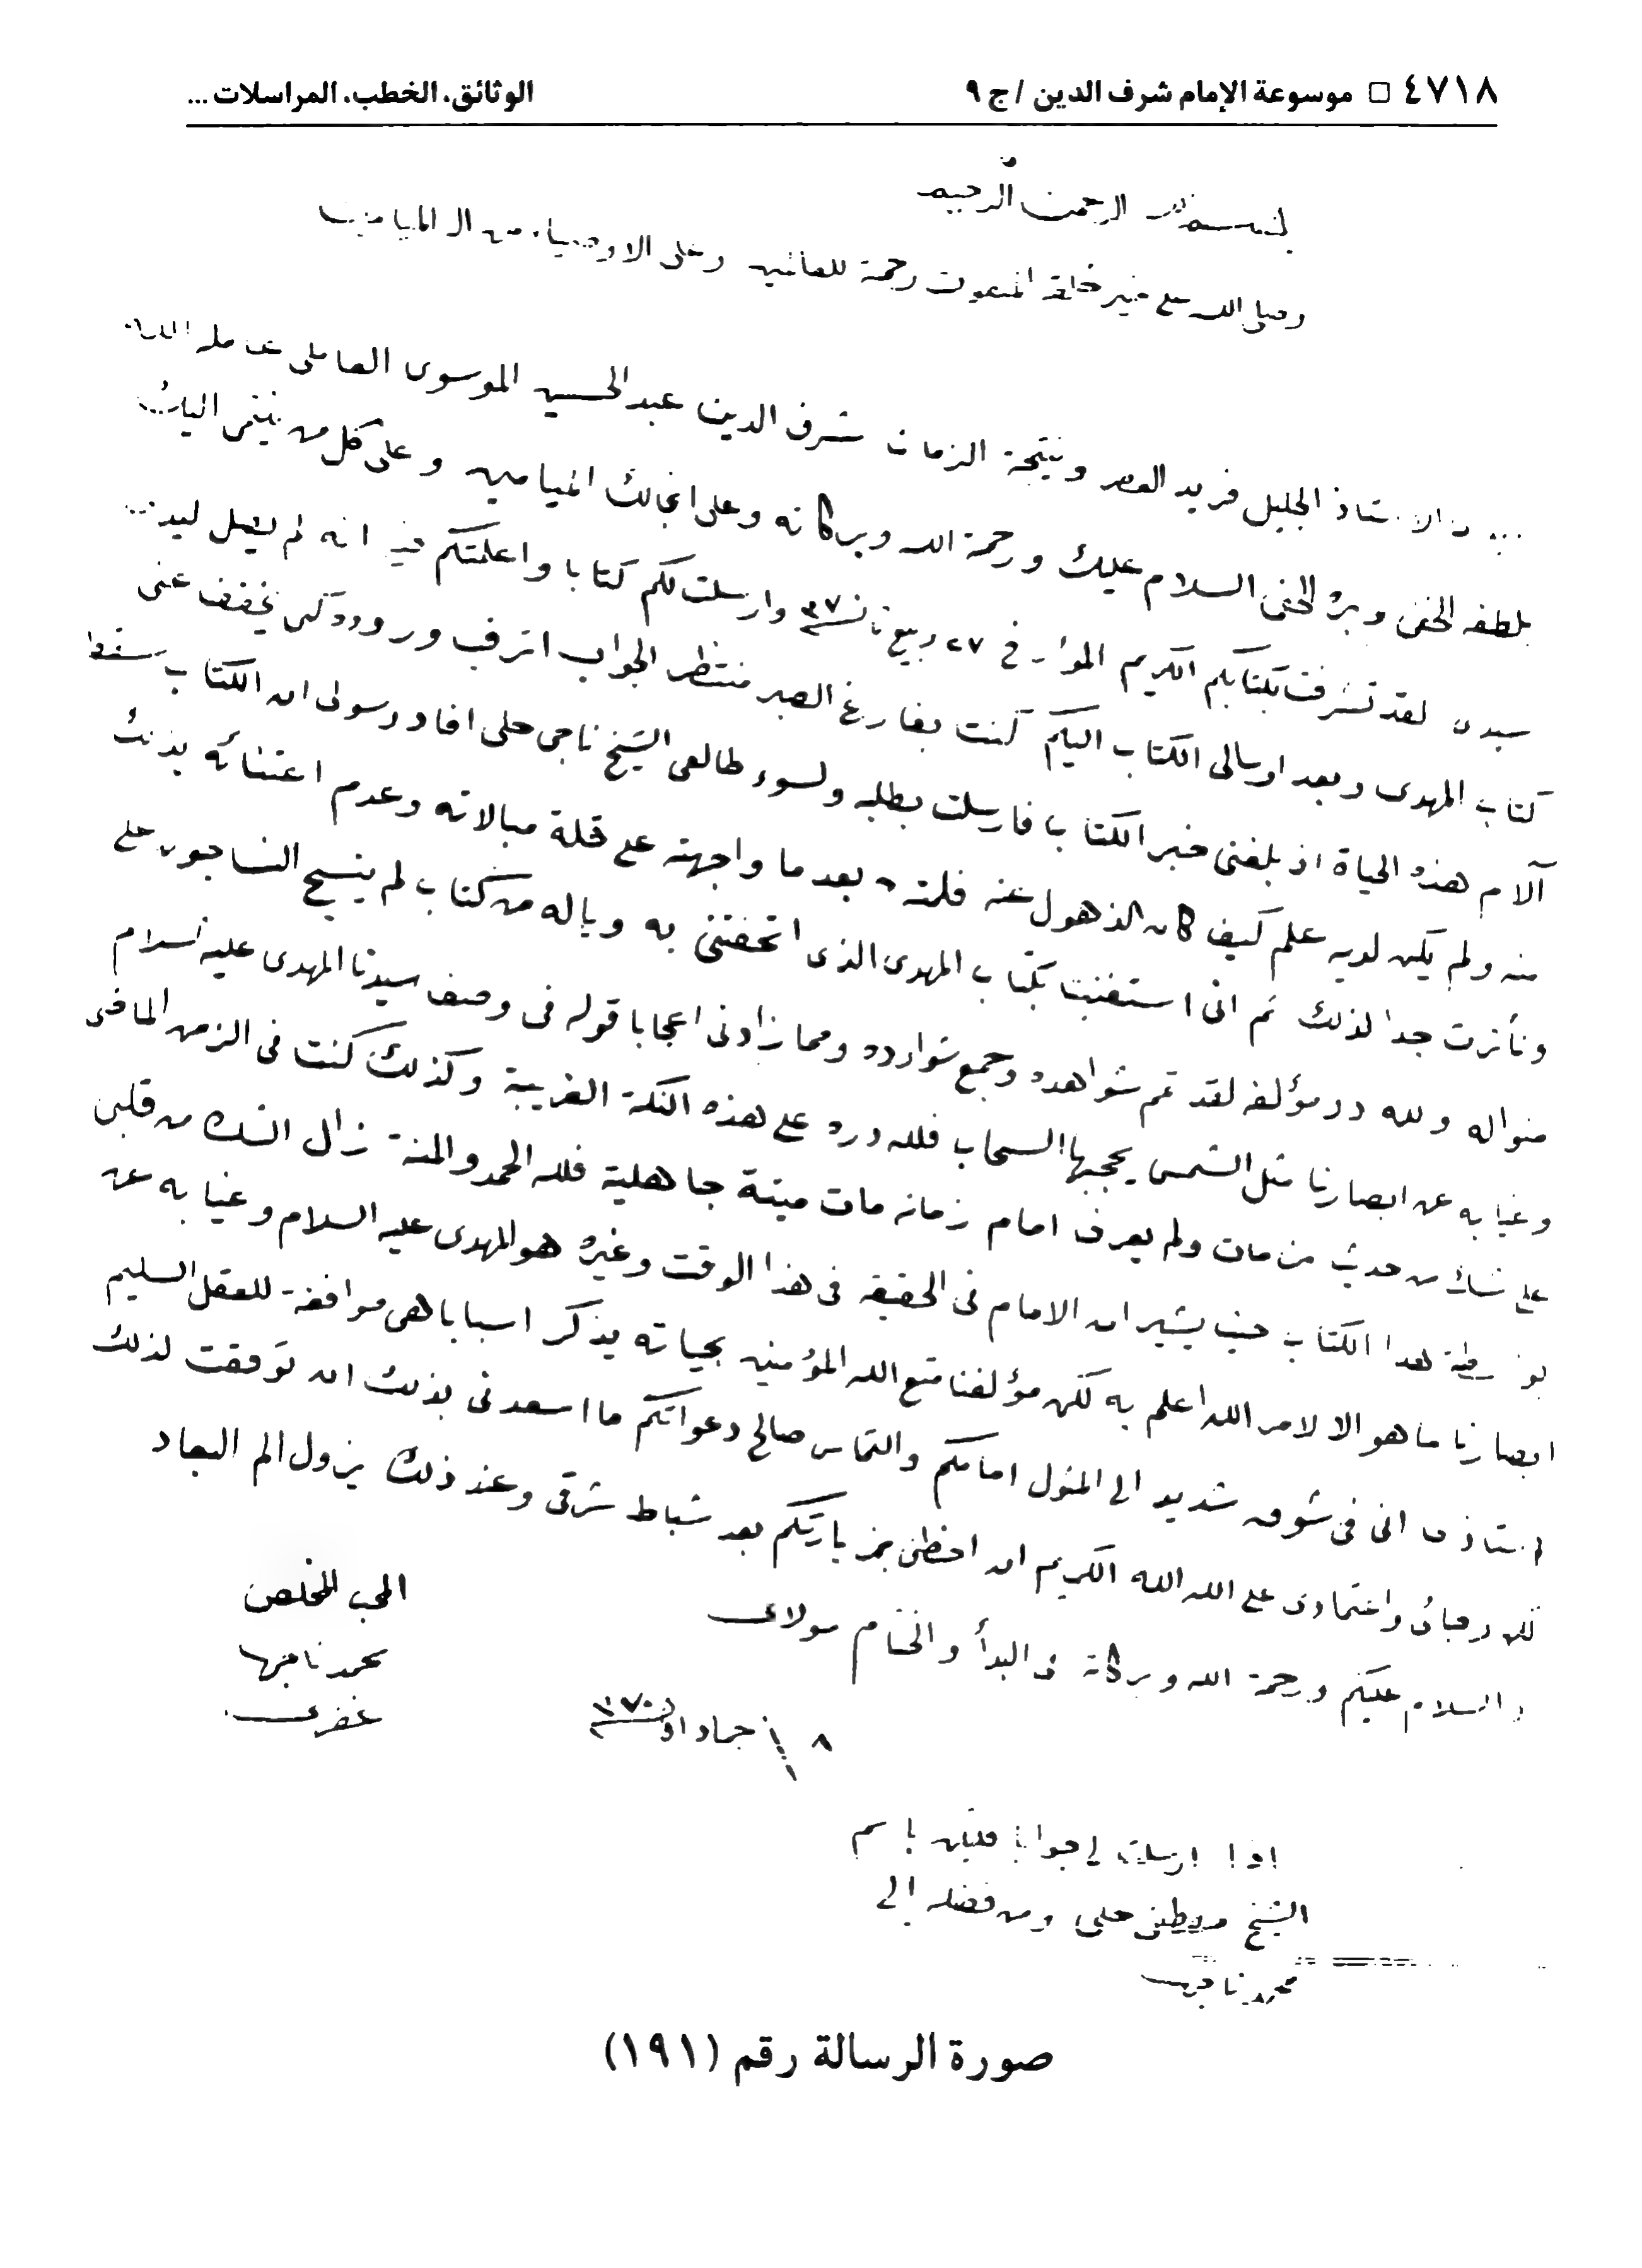 ٤٧١٨ □ موسوعة الإمام شرف الدين / ج ٩
الوثائق، الخطب، المراسلات ...
بسم الله الرحمن الرحيم
وصلى الله على خير خلقه المبعوث رحمة للعالمين وعلى الاوصياء من ال الميامين
الاستاذ الجليل فريد العصر ونتيجة الزمان شرف الدين عبد الحسين الموسوى العاملى عامله الله
بلطفه الخفى وبره الحفى السلام عليك ورحمة الله وبركاته وعلى انجالك الميامين وعلى كل من ينتمى اليك
سيدى لقد تشرفت بكتابكم الكريم المؤرخ ٢٧ ربيع وارسلت لكم كتابا واعلمتكم فيه انه لم يصل ليد
كتاب المهدى وبعد ارسالى الكتاب اليكم كنت بفارغ الصبر منتظر الجواب اترقب وروده كى يخفف عنى
آلام هذه الحياة اذ بلغنى خبر الكتاب فارسلت بطلبه ولسوء طالعى الشيخ ناجى حلى افاد رسولى ان الكتاب سقط
منه ولم يكن لديه علم كيف كان الذهول عنه فلمته بعد ما واجهته على قلة مبالاته وعدم اعتنائه بذلك
وتأثرت جدا لذلك ثم انى استغنيت بكتاب المهدى الذى اتحفتنى به وياله من كتاب لم ينسج الناسجون على
منواله ولله در مؤلفه لقد تم شواهده وجمع شوارده ومما زادنى اعجابا قوله فى وصف سيدنا المهدى عليه السلام
وغيابه عن ابصارنا مثل الشمس يحجبها السحاب فلله دره على هذه النكتة الغريبة وكذلك كنت فى الزمن الماضى
على شك من حديث من مات ولم يعرف امام زمانه مات ميتة جاهلية فلله الحمد والمنة زال الشك من قلبى
هذا الكتاب حيث يشير ان الامام فى الحقيقة فى هذا الوقت وغيره هو المهدى عليه السلام وغيابه عن
ابصارنا ما هو الا لامر الله اعلم به لكن مؤلفنا متع الله المؤمنين بحياته يذكر اسبابا هى موافقة للعقل السليم
استاذى انى فى شوق شديد الى المثول امامكم والتماس صالح دعواتكم ما اسعدنى بذلك ان توفقت لذلك
لكن رجائى واعتمادى على الله الكريم ان احظى بزيارتكم بعد شباط شرقى وعند ذلك يزول الم البعاد
والسلام عليكم ورحمة الله وبركاته فى البدأ والختام مولاى
المحب المخلص
محمد ناجى
غفرى
٨ جماد
اذا ارسلت لى جوابا فليكن باسم
الشيخ مصطفى حلى ومن فضله الى
محمد ناجى
صورة الرسالة رقم (١٩١)